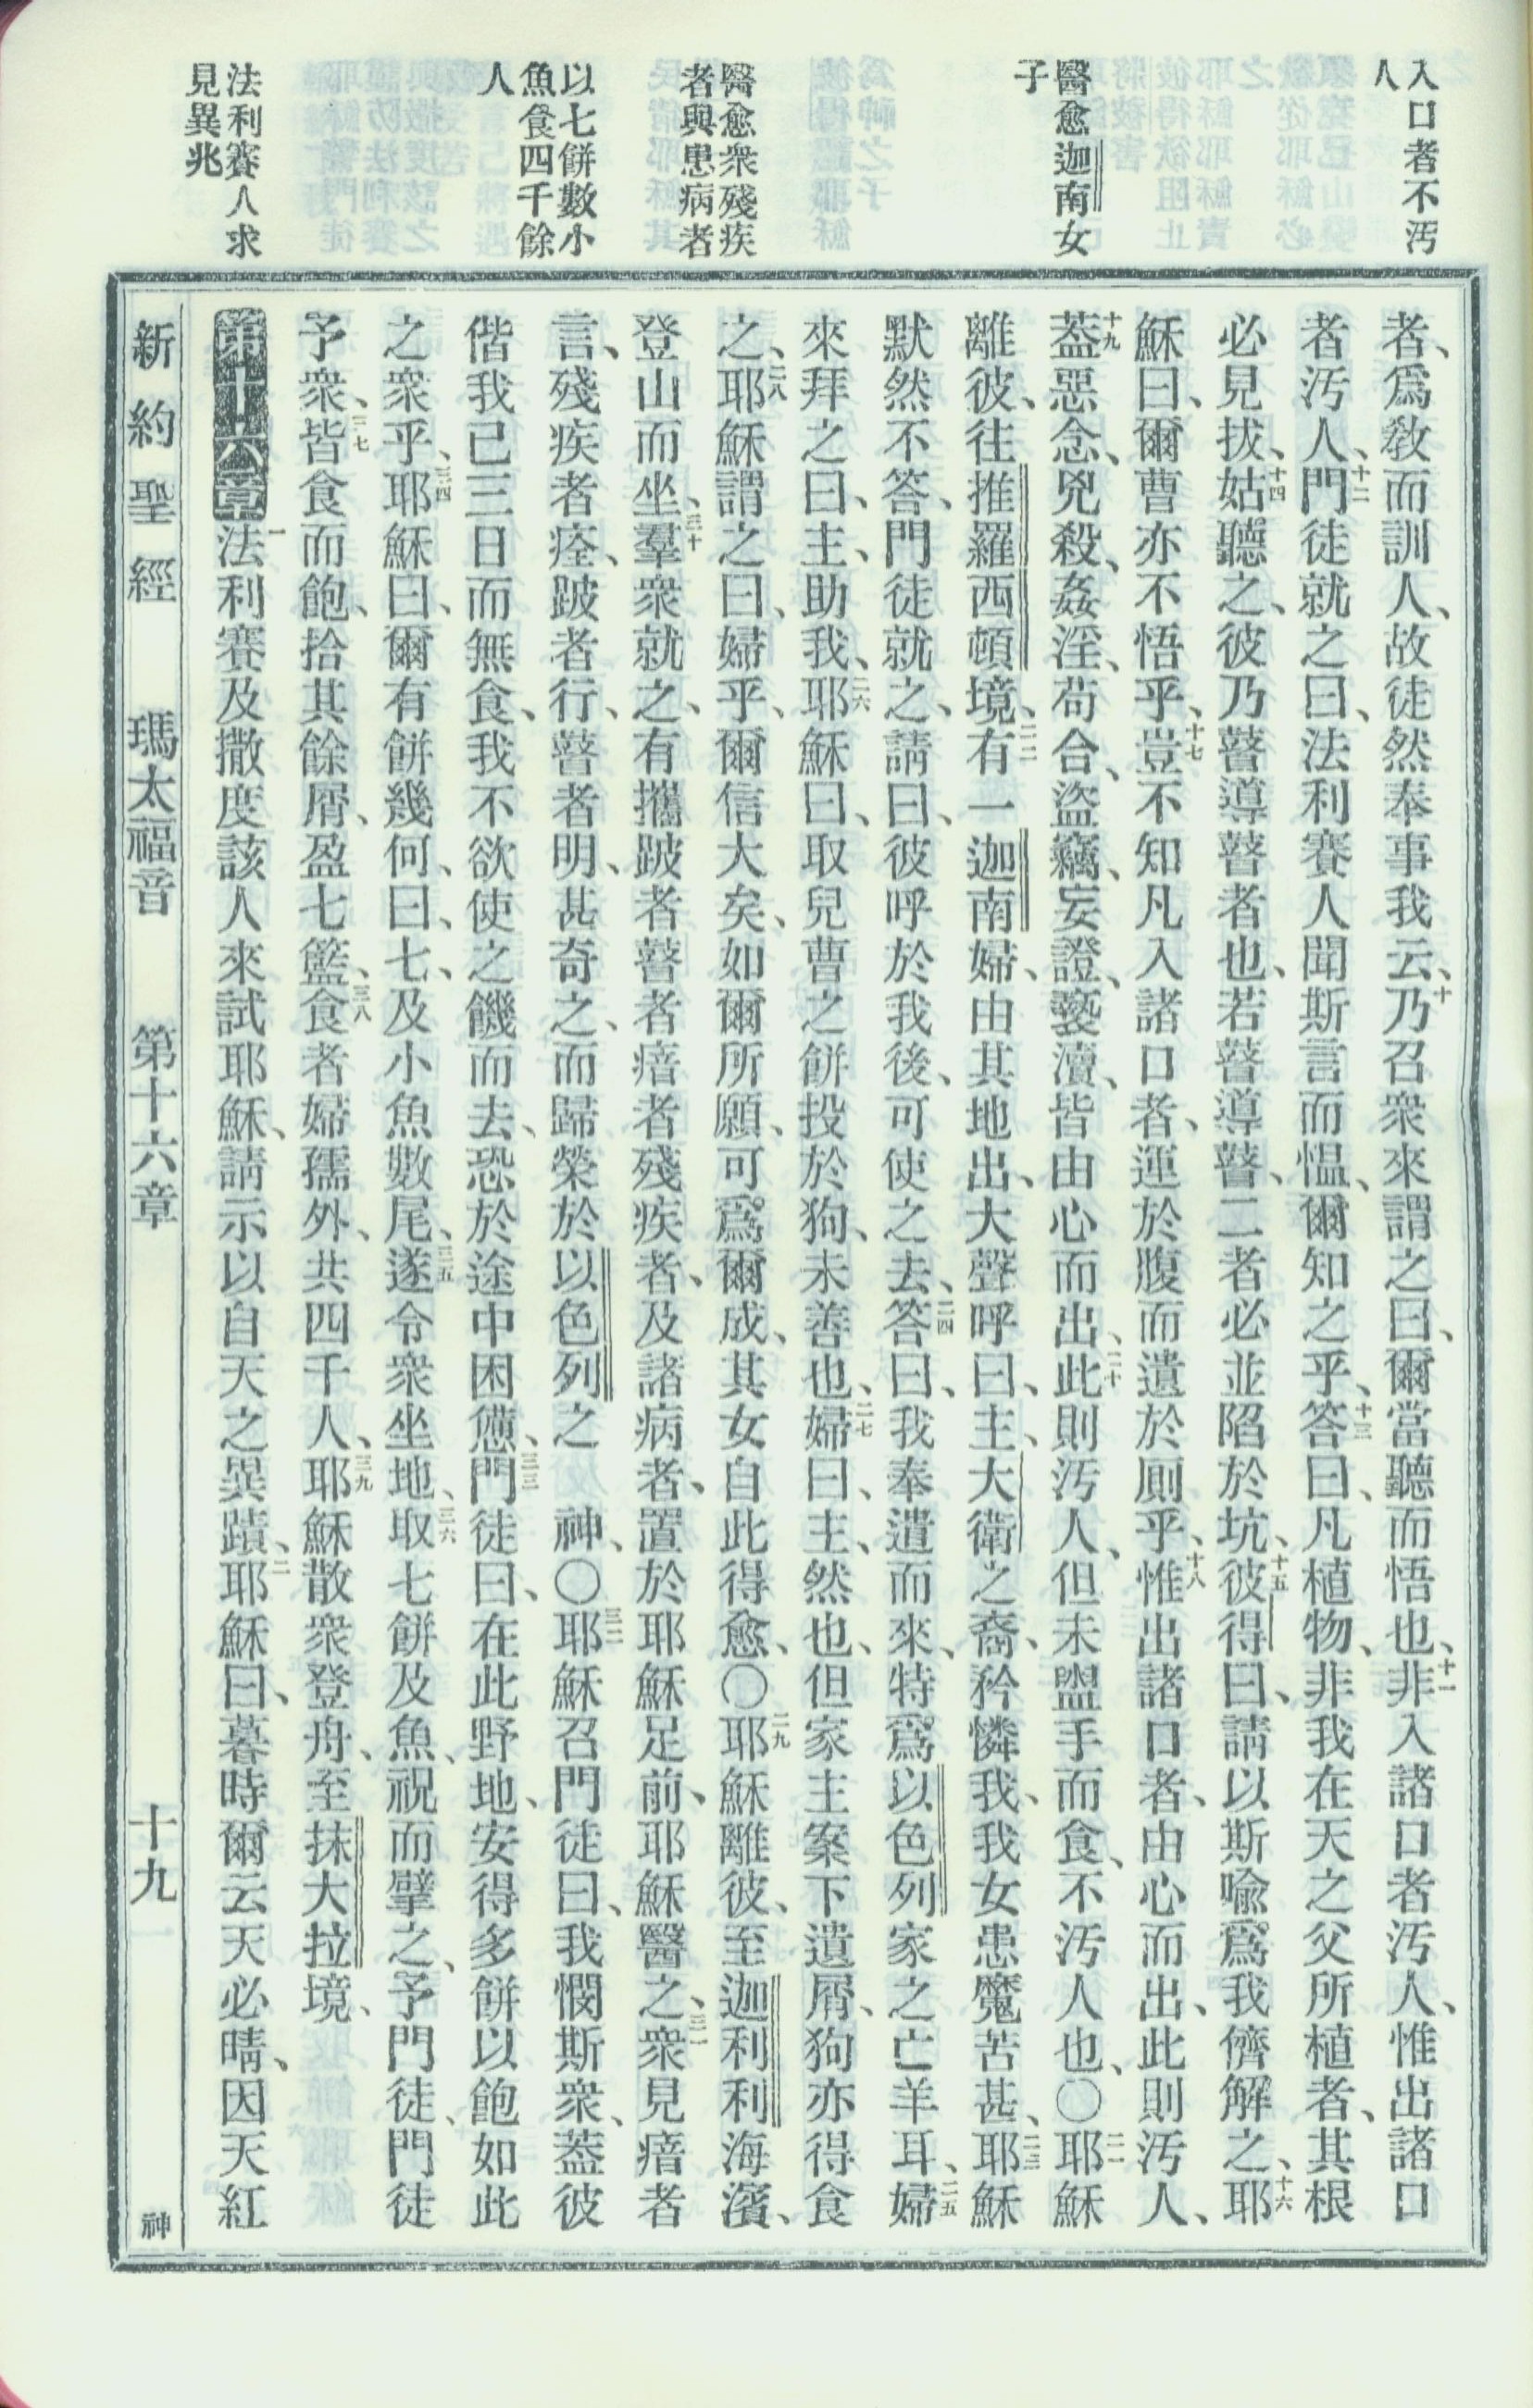 入口者不汚
人
醫愈迦南女
子
醫愈衆殘疾
者與患病者
以七餅數小
魚食四千餘
人
法利賽人求
見異兆
者、爲敎而訓人、故徒然奉事我云、十乃召衆來謂之曰、爾當聽而悟也、十一非入諸口者汚人、惟出諸口
者汚人、十二門徒就之曰、法利賽人聞斯言而慍、爾知之乎、十三答曰、凡植物、非我在天之父所植者、其根
必見拔、十四姑聽之、彼乃瞽導瞽者也、若瞽導瞽、二者必並陷於坑、十五彼得曰、請以斯喩爲我儕解之、十六耶
穌曰、爾曹亦不悟乎、十七豈不知凡入諸口者、運於腹而遺於厠乎、十八惟出諸口者、由心而出、此則汚人、
十九蓋惡念、兇殺、姦淫、苟合、盜竊、妄證、褻瀆、皆由心而出、二十此則汚人、但未盥手而食、不汚人也、〇二一耶穌
離彼、往推羅西頓境、二二有一迦南婦、由其地出、大聲呼曰、主、大衛之裔、矜憐我、我女患魔苦甚、二三耶穌
默然不答、門徒就之、請曰、彼呼於我後、可使之去、二四答曰、我奉遣而來、特爲以色列家之亡羊耳、二五婦
來拜之曰、主、助我、二六耶穌曰、取兒曹之餅投於狗、未善也、二七婦曰、主、然也、但家主案下遺屑、狗亦得食
之、二八耶穌謂之曰、婦乎、爾信大矣、如爾所願、可爲爾成、其女自此得愈、〇二九耶穌離彼、至迦利利海濱、
登山而坐、三十羣衆就之、有攜跛者瞽者瘖者殘疾者、及諸病者、置於耶穌足前、耶穌醫之、三一衆見瘖者
言、殘疾者痊、跛者行、瞽者明、甚奇之、而歸榮於以色列之　神、〇三二耶穌召門徒曰、我憫斯衆、蓋彼
偕我已三日而無食、我不欲使之饑而去、恐於途中困憊、三三門徒曰、在此野地、安得多餅以飽如此
之衆乎、三四耶穌曰、爾有餅幾何、曰、七、及小魚數尾、三五遂令衆坐地、三六取七餅及魚、祝而擘之、予門徒、門徒
予衆、三七皆食而飽、拾其餘屑、盈七籃、三八食者婦孺外、共四千人、三九耶穌散衆登舟、至抹大拉境、
第十六章一法利賽及撒度該人來試耶穌、請示以自天之異蹟、二耶穌曰、暮時爾云天必晴、因天紅
新約聖經　瑪太福音　第十六章　十九　神